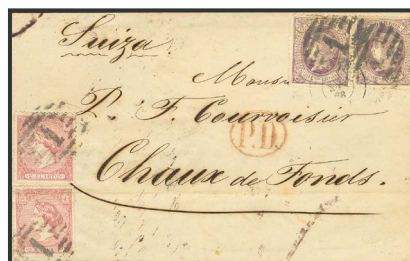 Suiza.
Monsr
P. F. Courvoisier
P.D.
Chaux de Fonds.